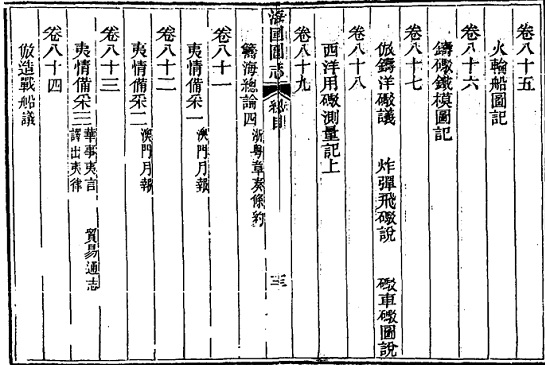 卷八十五
火輪船圖記
卷八十六
鑄礮鐵模圖記
卷八十七
倣鑄洋礮議 炸彈飛礮說 礮車礮圖說
卷八十八
西洋用礮測量記上
卷八十九
海國圖志 總目 三
籌海總論四 浙粵章奏條約
卷八十一
夷情備采一 澳門月報
卷八十二
夷情備采二 澳門月報
卷八十三
夷情備采三 華事夷言 譯出夷律 貿易通志
卷八十四
倣造戰船議